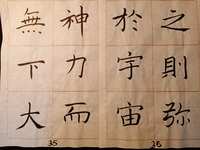 之則弥
於宇宙
神力而
無下大
35